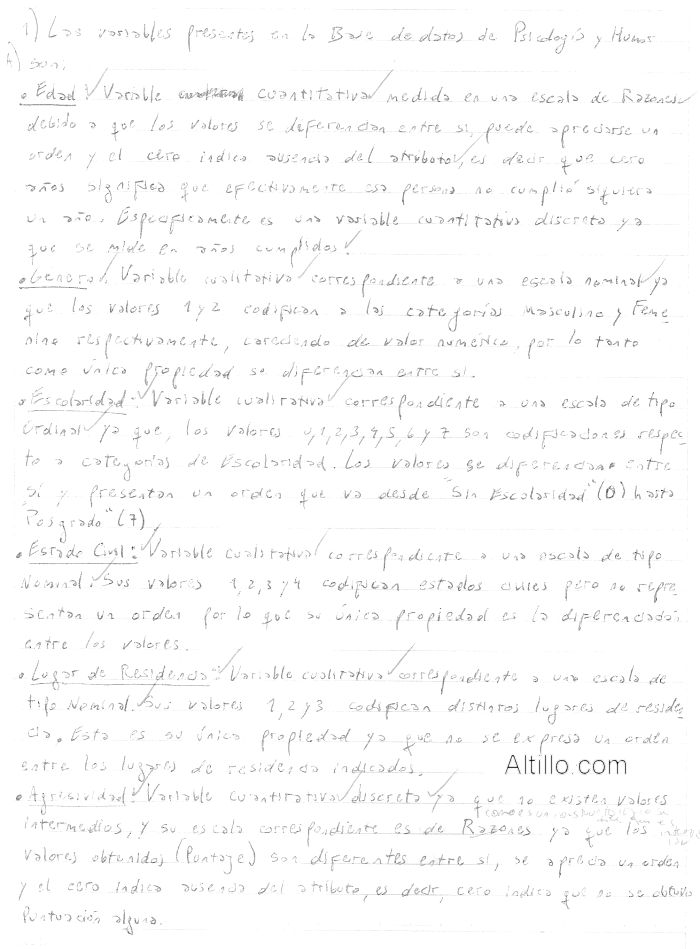 1) Las variables presentes en la Base de datos de Psicología y Humor
A) son:
• Edad: Variable cuantitativa medida en una escala de Razones
debido a que los valores se diferencian entre si, puede apreciarse un
orden y el cero indica ausencia del atributo, es decir que cero
años significa que efectivamente esa persona no cumplió siquiera
un año. Específicamente es una variable cuantitativa discreta ya
que se mide en años cumplidos.
• Genero: Variable cualitativa correspondiente a una escala nominal ya
que los valores 1 y 2 codifican a las categorías Masculino y Feme
nino respectivamente, careciendo de valor numérico, por lo tanto
como única propiedad se diferencian entre sí.
• Escolaridad: Variable cualitativa correspondiente a una escala de tipo
Ordinal ya que, los valores 0,1,2,3,4,5,6 y 7 son codificaciones respec
to a categorías de Escolaridad. Los valores se diferencian entre
sí y presentan un orden que va desde "Sin Escolaridad" (0) hasta
"Posgrado" (7)
• Estado Civil: Variable cualitativa correspondiente a una escala de tipo
Nominal. Sus valores 1, 2, 3 y 4 codifican estados civiles pero no repre
sentan un orden por lo que su única propiedad es la diferenciación
entre los valores.
• Lugar de Residencia: Variable cualitativa correspondiente a una escala de
tipo Nominal. Sus valores 1, 2 y 3 codifican distintos lugares de residen
cia. Esta es su única propiedad ya que no se expresa un orden
entre los lugares de residencia indicados.
Altillo.com
• Agresividad: Variable cuantitativa discreta ya que no existen valores
intermedios, y su escala correspondiente es de Razones ya que los
valores obtenidos (Puntaje) son diferentes entre sí, se aprecia un orden
y el cero indica ausencia del atributo, es decir, cero indica que no se obtuvo
Puntuación alguna.